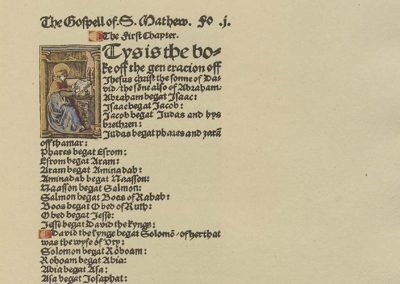 The Gospell of. S. Mathew. Fo .j.
The First Chapter.
Tys is the bo-
ke off the gen eracion off
Jhesus christ the sonne of Da-
vid/the sone also of Abraham.
Abraham begat Isaac:
Isaac begat Jacob:
Jacob begat Judas and hys
brethren:
Judas begat phares and zarā
off thamar:
Phares begat Esrom:
Esrom begat Aram:
Aram begat Aminadab:
Aminadab begat Naasson:
Naasson begat Salmon:
Salmon begat Boos of Rahab:
Boos begat Obed of Ruth:
Obed begat Jesse:
Jesse begat David the kynge:
David the kynge begat Solomō/of her that
was the wyfe of Vry:
Solomon begat Roboam:
Roboam begat Abia:
Abia begat Asa:
Asa begat Josaphat: